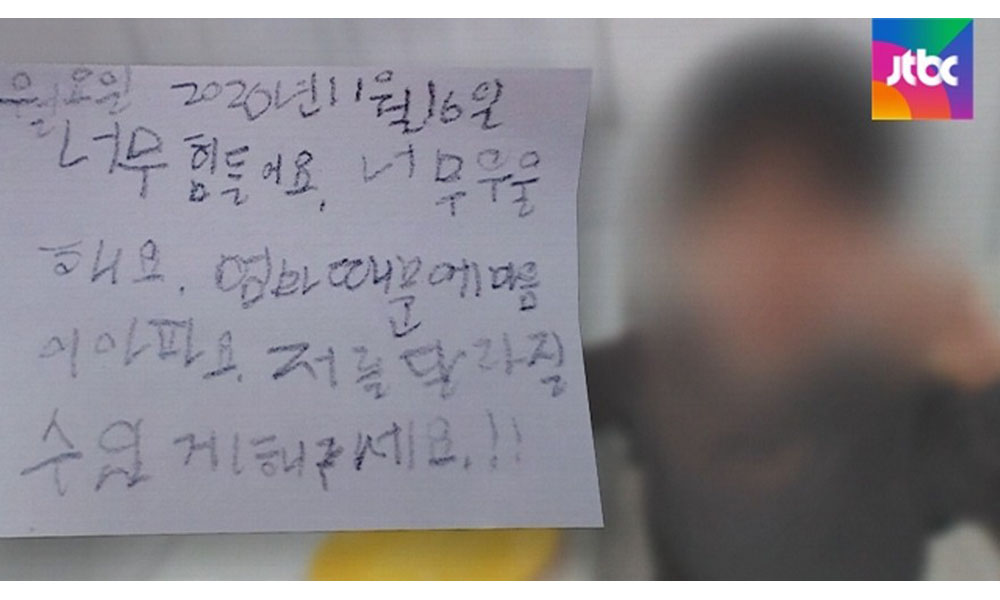 jtbc
월요일 2020년 11월16일
너무 힘들어요, 너무우울
해요. 엄마때문에마음
이아파요. 저를달라질
수있게해주세요.!!